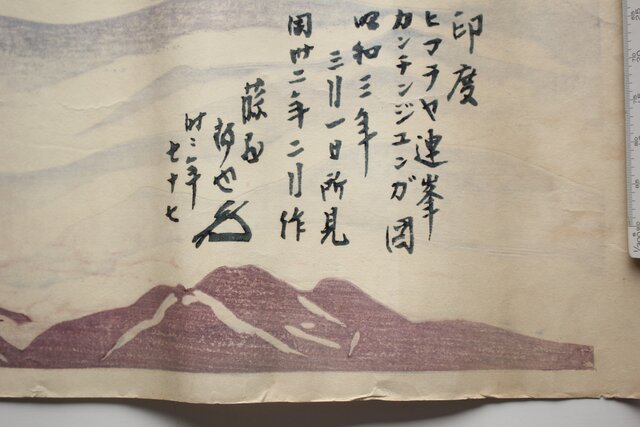 印度
ヒマラヤ連峯
カンチンジユンガ図
昭和三年
三月一日所見
同卅二年二月作
藤
時二年
七十七